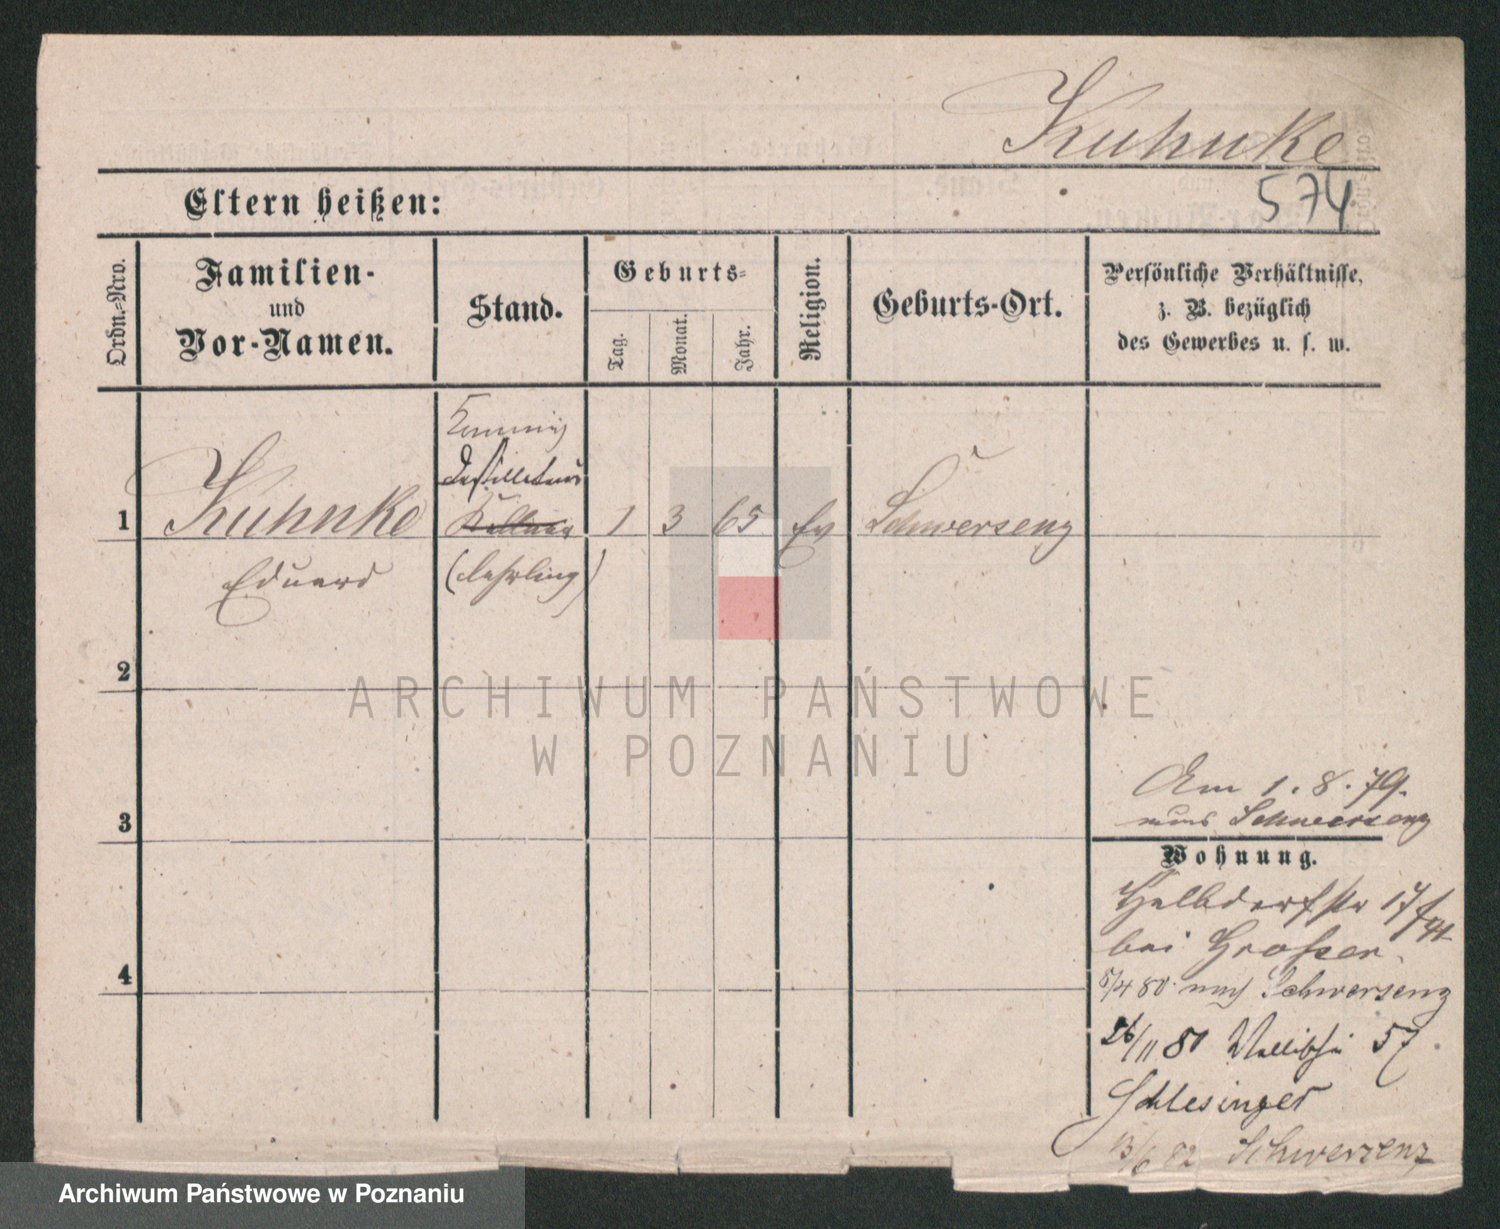 Kuhnke
574
Eltern heißen:
Ordn.-Nro.
Familien-
und
Vor-Namen.
Stand.
Geburts-
Tag.
Monat.
Jahr.
Religion.
Geburts-Ort.
Persönliche Verhältnisse,
z. B. bezüglich
des Gewerbes u. s. w.
1
Kuhnke
Eduard
Destillateur
Kellner
(Lehrling)
1
3
65
Ev
Schwersenz
2
3
4
ARCHIWUM PAŃSTWOWE
W POZNANIU
Am 1. 8. 79.
nach Schwersenz
Wohnung.
Halbdorfstr 17
bei Grosser.
5/4 80 nach Schwersenz
26/11 80 Wallischei 57.
Schlesinger
13/6 82 Schwersenz
Archiwum Państwowe w Poznaniu